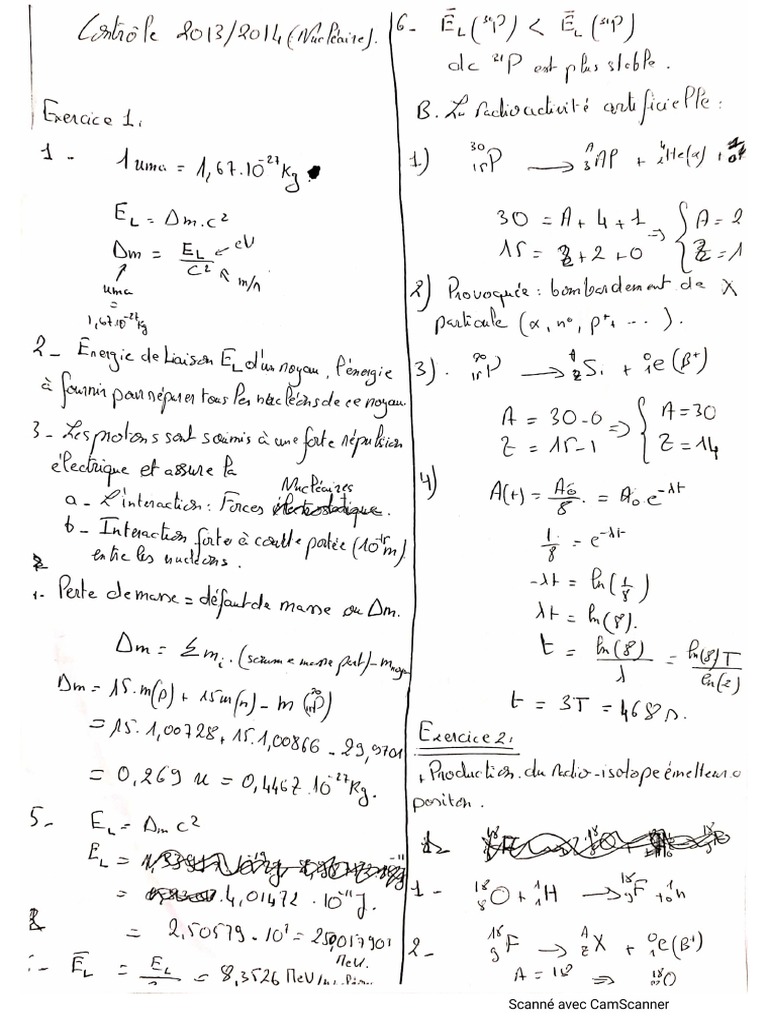 Contrôle 2013/2014 (Nucléaire).
Exercice 1:
1 - 1 uma = 1,67.10^-27 Kg.
E_L = Δm.c²
Δm = E_L/C² ← eV
m/s
uma
=
1,67.10^-27 kg
2 - Energie de liaison E_L d'un noyau, l'énergie
à fournir pour séparer tous les nucléons de ce noyau
3 - Les protons sont soumis à une forte répulsion
électrique et assure la
Nucléaires
a - L'interaction : Forces électrostatique.
b - Interaction forte à courte portée (10^-15 m)
entre les nucléons.
Perte de masse = défaut de masse ou Δm.
Δm = Σ m_i. (somme masse part) - m noyau
Δm = 15.m(p) + 15m(n) - m(30/15 P)
= 15.1,00728 + 15.1,00866 - 29,9701
= 0,269 u = 0,4467.10^-27 Kg.
5 - E_L = Δm c²
E_L =
= 4,01472 . 10^-11 J.
=
MeV.
E_L = E_L/ = 8,3526 MeV/
6 - E_L ( P) < E_L ( P)
dc P est plus stable.
B. La radioactivité artificielle :
1) 30/15 P → A/ Al + 4/2 He(α) +
30 = A + 4 + 1 ⇒ { A = 2
15 = Z + 2 + 0 { Z = 1
2) Provoquée : bombardement de X
particule (α, n°, p+, ...).
3). 30/15 P → A/Z Si + 0/1 e (β+)
A = 30 - 0 ⇒ { A = 30
Z = 15 - 1 { Z = 14
4) A(t) = A₀/8 = A₀ e^-λt
1/8 = e^-λt
-λt = ln(1/8)
λt = ln(8).
t = ln(8)/λ = ln(8)T/ln(2)
t = 3T = 468 s.
Exercice 2:
+ Production du radio-isotope émetteur
positon.
1 - 18/8 O + 1/1 H → 18/9 F + 1/0 n
2 - 18/9 F → A/Z X + 0/1 e (β+)
A = 18 ⇒ O
Scanné avec CamScanner